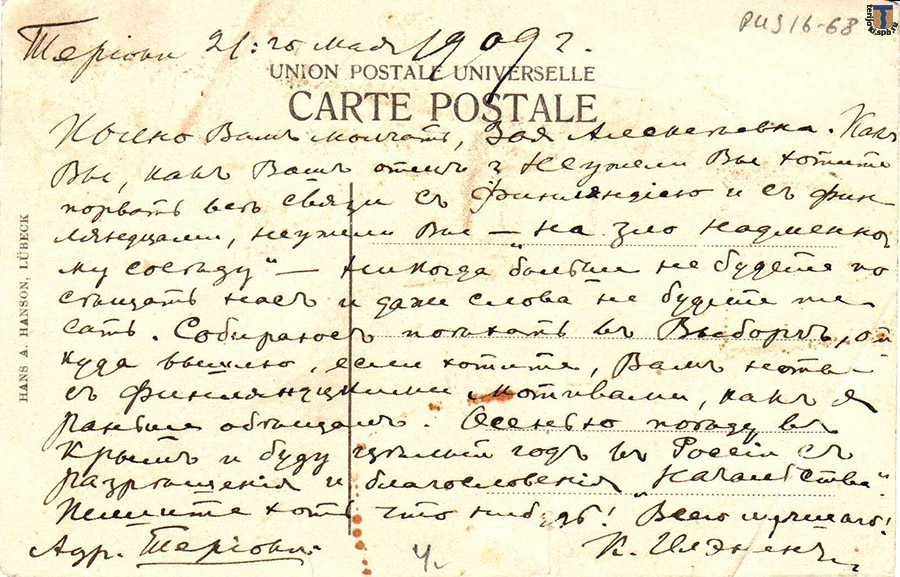 Терiоки 21:го мая 1909 г.
РИЗ 16-68
terijoki.spb.ru
UNION POSTALE UNIVERSELLE
CARTE POSTALE
Вамъ молчать, Зоя Алексѣевна. Какъ
Вы, какъ Вашъ отецъ? Неужели Вы хотите
порвать всѣ связи съ Финляндiею и съ фин-
ляндцами, неужели Вы — "на зло надменно-
му сосѣду" — никогда больше не будете по
сѣщать насъ и даже слова не будете пи-
сать. Собираюсь поѣхать въ Выборгъ, от
куда вышлю, если хотите, Вамъ ноты
съ финляндскими мотивами, какъ я
раньше обѣщалъ. Осенью поѣду въ
Крымъ и буду цѣлый годъ въ Россiи съ
разрѣшенiя и благословенiя "начальства".
Пишите хоть что нибудь! Всего лучшаго!
Адр. Терiоки.
К.
Ч.
HANS A. HANSON, LÜBECK